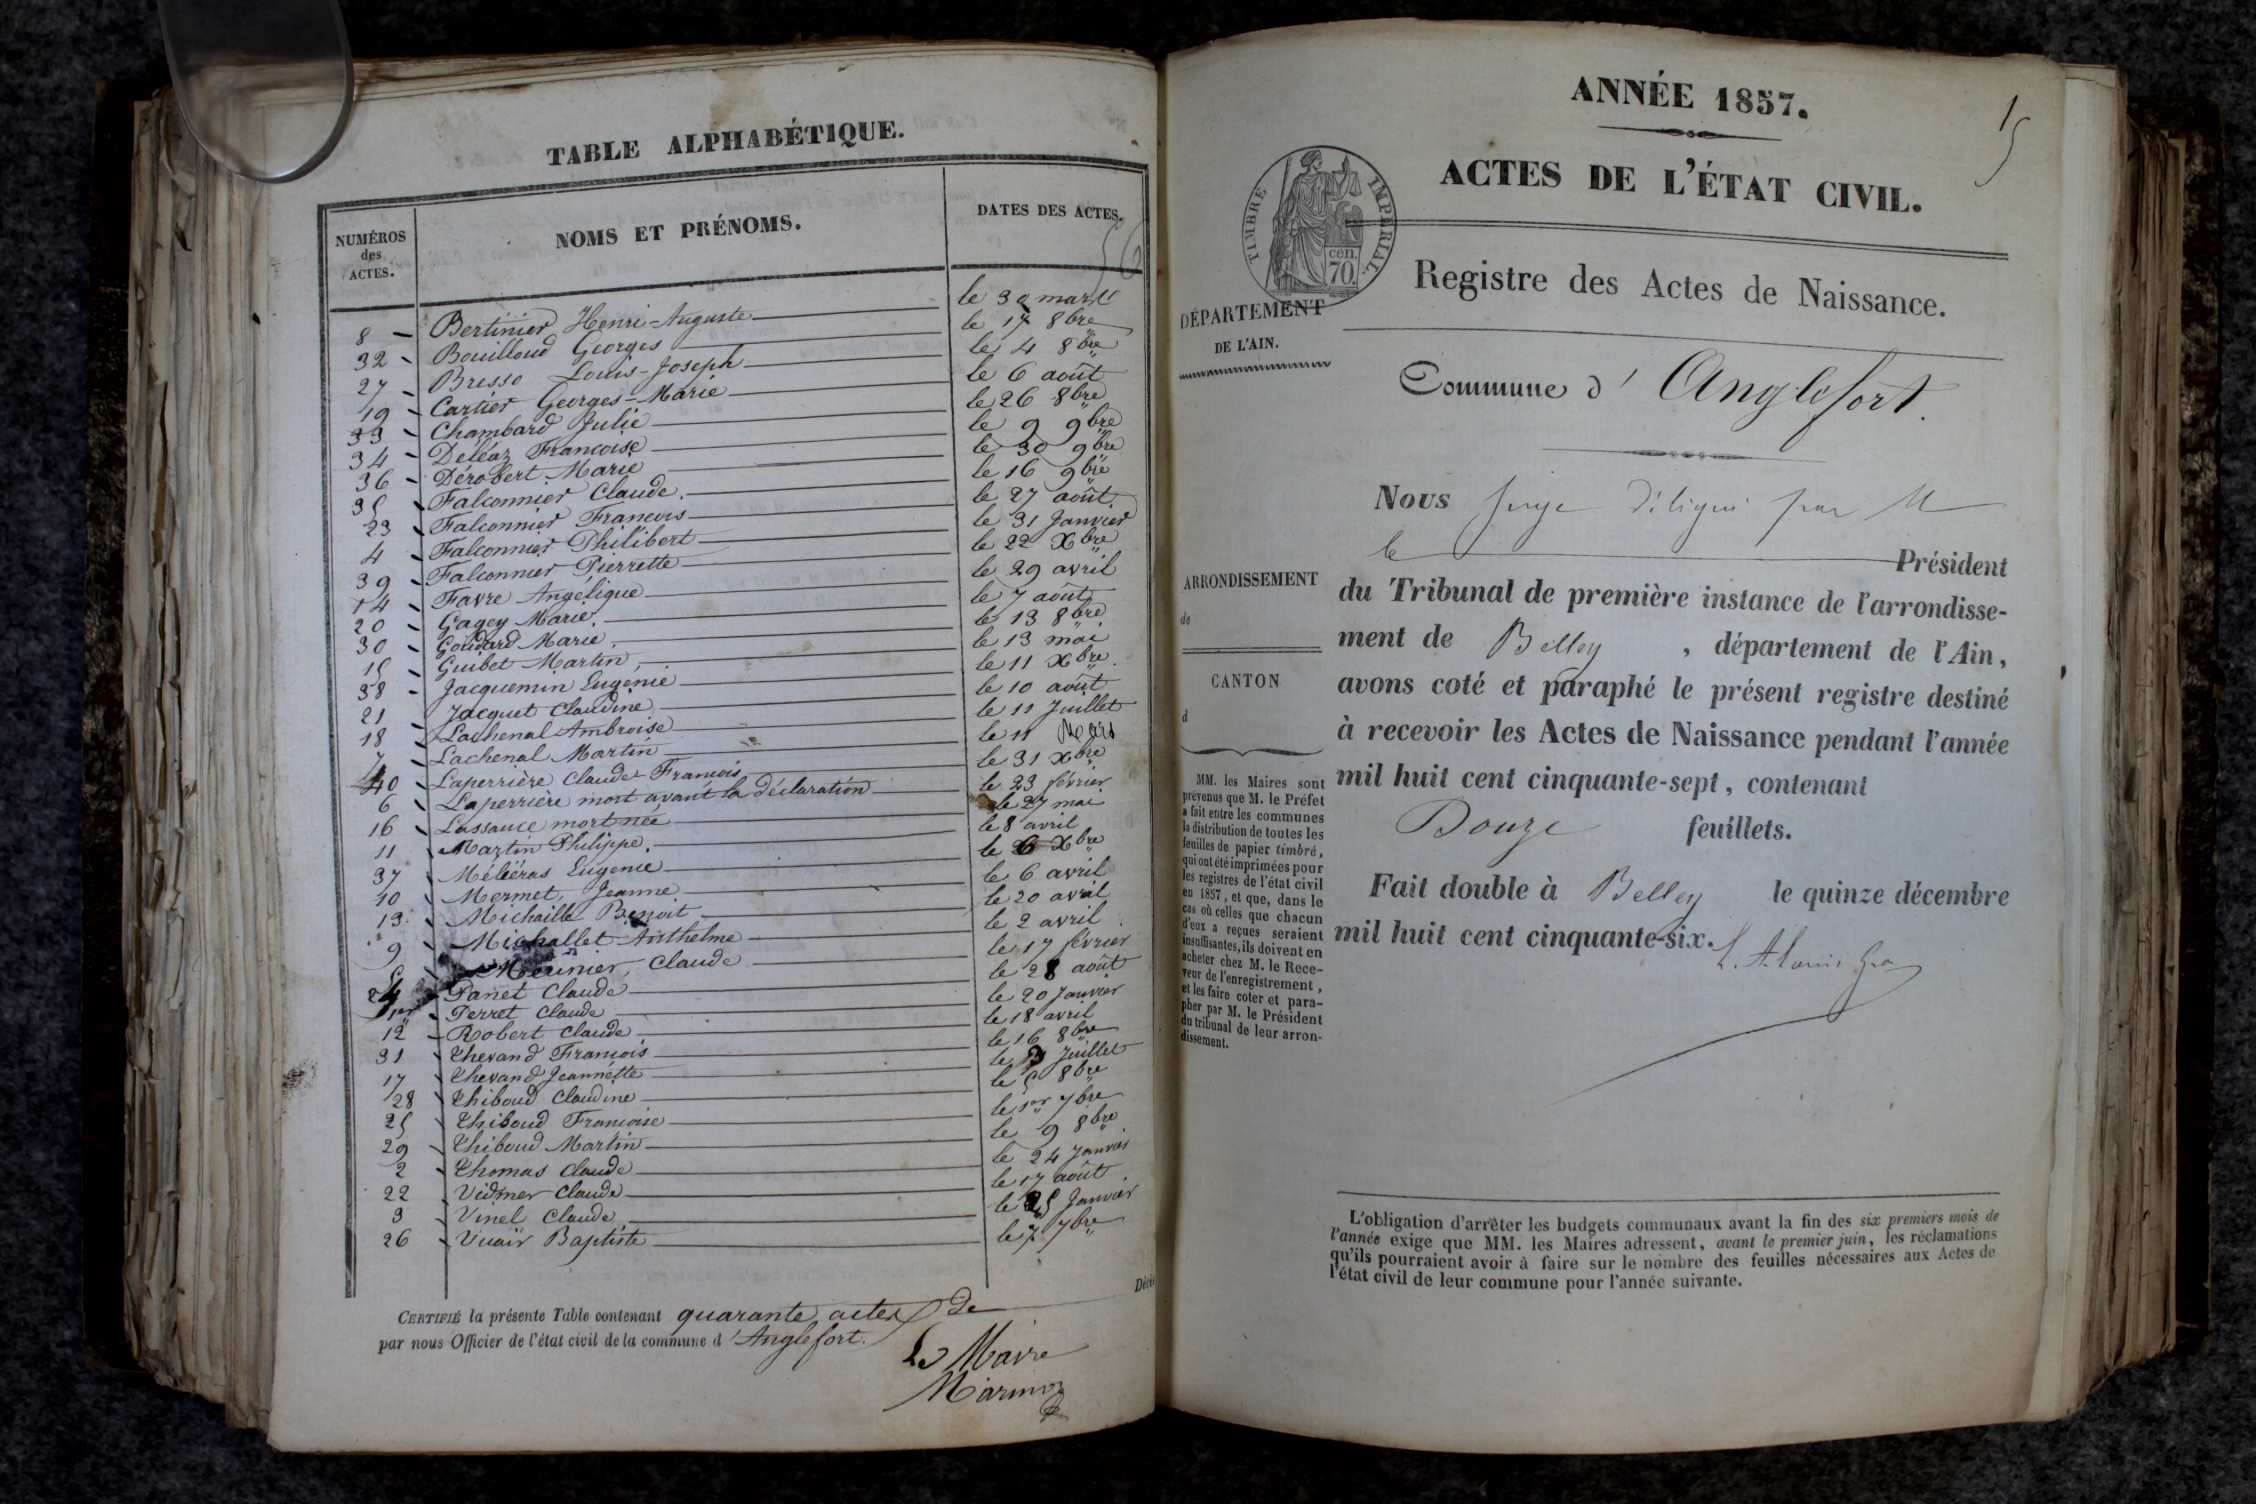 TABLE ALPHABÉTIQUE.
NUMÉROS des ACTES. NOMS ET PRÉNOMS. DATES DES ACTES.
56
8 Bertinier Henri-Auguste le 30 mars
32 Bouilloud Georges le 17 8bre
27 Bresso Louis-Joseph le 4 8bre
19 Cartier Georges-Marie le 6 août
33 Chambard Julie le 26 8bre
34 Déléaz Françoise le 9 9bre
36 Dérobert Marie le 30 9bre
35 Falconnier Claude. le 16 9bre
23 Falconnier François le 27 août
4 Falconnier Philibert le 31 Janvier
39 Falconnier Pierrette le 22 Xbre
14 Favre Angélique le 29 avril
20 Gagey Marie. le 7 août
30 Goddard Marie le 13 8bre
15 Guibet Martin, le 13 mai
38 Jacquemin Eugénie le 11 Xbre
21 Jacquet Claudine le 10 août
18 Lachenal Ambroise le 11 Juillet
7 Lachenal Martin le 11 Mars
40 Laperrière Claude François le 31 Xbre
6 Laperrière mort avant la déclaration le 23 février
16 Lassauce mort née le 27 mai
11 Martin Philippe. le 8 avril
37 Méliéras Eugénie le 6 Xbre
10 Mermet, Jeanne le 6 avril
13 Michaille Benoit le 20 avril
9 Michallet Anthelme le 2 avril
5 Meunier, Claude le 17 février
24 Panet Claude le 28 août
1er Perret Claude le 20 Janvier
12 Robert Claude le 18 avril
31 Thevand François le 16 8bre
17 Thevand Jeannette le Juillet
28 Thiboud Claudine le 5 8bre
25 Thiboud Françoise le 1er 7bre
29 Thiboud Martin le 9 8bre
2 Thomas Claude le 24 Janvier
22 Vidmer Claude le 17 août
3 Vinel Claude le 25 Janvier
26 Vuair Baptiste le 7 7bre
Décès
CERTIFIÉ la présente Table contenant quarante actes de
par nous Officier de l'état civil de la commune d'Anglefort.
Le Maire
Marmoz
ANNÉE 1857.
15
ACTES DE L'ÉTAT CIVIL.
TIMBRE IMPÉRIAL.
cen.
70.
Registre des Actes de Naissance.
DÉPARTEMENT
DE L'AIN.
Commune d'Anglefort.
Nous Juge délégué par M
le Président
ARRONDISSEMENT
de
du Tribunal de première instance de l'arrondisse-
ment de Belley, département de l'Ain,
CANTON
d
avons coté et paraphé le présent registre destiné
à recevoir les Actes de Naissance pendant l'année
mil huit cent cinquante-sept, contenant
Douze feuillets.
Fait double à Belley le quinze décembre
mil huit cent cinquante-six.
MM. les Maires sont
prévenus que M. le Préfet
a fait entre les communes
la distribution de toutes les
feuilles de papier timbré,
qui ont été imprimées pour
les registres de l'état civil
en 1857, et que, dans le
cas où celles que chacun
d'eux a reçues seraient
insuffisantes, ils doivent en
acheter chez M. le Rece-
veur de l'enregistrement,
et les faire coter et para-
pher par M. le Président
du tribunal de leur arron-
dissement.
L'obligation d'arrêter les budgets communaux avant la fin des six premiers mois de
l'année exige que MM. les Maires adressent, avant le premier juin, les réclamations
qu'ils pourraient avoir à faire sur le nombre des feuilles nécessaires aux Actes de
l'état civil de leur commune pour l'année suivante.